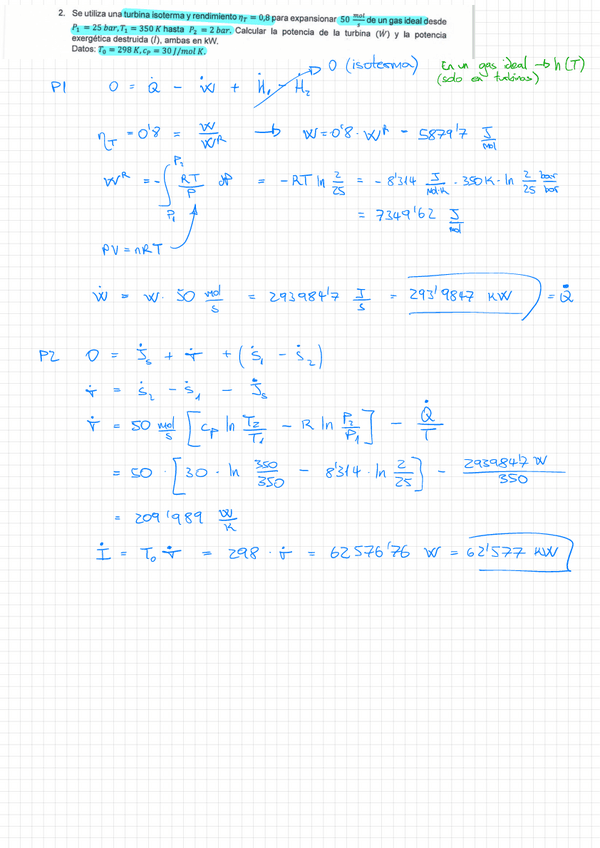 2. Se utiliza una turbina isoterma y rendimiento η_T = 0,8 para expansionar 50 mol/s de un gas ideal desde
P₁ = 25 bar, T₁ = 350 K hasta P₂ = 2 bar. Calcular la potencia de la turbina (Ẇ) y la potencia
exergética destruida (İ), ambas en kW.
Datos: T₀ = 298 K, c_P = 30 J/mol K.
0 (isoterma)
En un gas ideal → h(T)
(solo en turbinas)
P1 0 = Q̇ - Ẇ + Ḣ₁ - Ḣ₂
η_T = 0'8 = W/W^R → W = 0'8 · W^R = 5879'7 J/mol
W^R = - ∫_{P₁}^{P₂} RT/P dP = - RT ln 2/25 = - 8'314 J/mol·K · 350 K · ln 2/25 bar/bar
= 7349'62 J/mol
PV = nRT
Ẇ = W · 50 mol/s = 293984'7 J/s = 293'9847 KW = Q̇
P2 0 = J̇_s + σ̇ + (ṡ₁ - ṡ₂)
σ̇ = ṡ₂ - ṡ₁ - J̇_s
σ̇ = 50 mol/s [c_p ln T₂/T₁ - R ln P₂/P₁] - Q̇/T
= 50 · [30 · ln 350/350 - 8'314 · ln 2/25] - 293984'7 W/350
= 209'989 W/K
İ = T₀ σ̇ = 298 · σ̇ = 62576'76 W = 62'577 KW